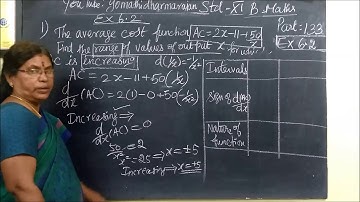 You tube Yomathidharmarajan Std-XI B.Maths
Ex 6.2
Part: 133
Ex 6.2
1) The average cost function AC=2x-11+50/x
Find the range of values of output x for which
c is increasing d(1/x)=-1/x²
AC = 2x-11+50(1/x)
d/dx(AC) = 2(1)-0+50(-1/x²)
Increasing ⇒
d/dx(AC)=0
50/x²=2
x²=25⇒x=±5
Increasing ⇒ x=±5
Intervals
Sign of d(AC)/dx
Nature of function